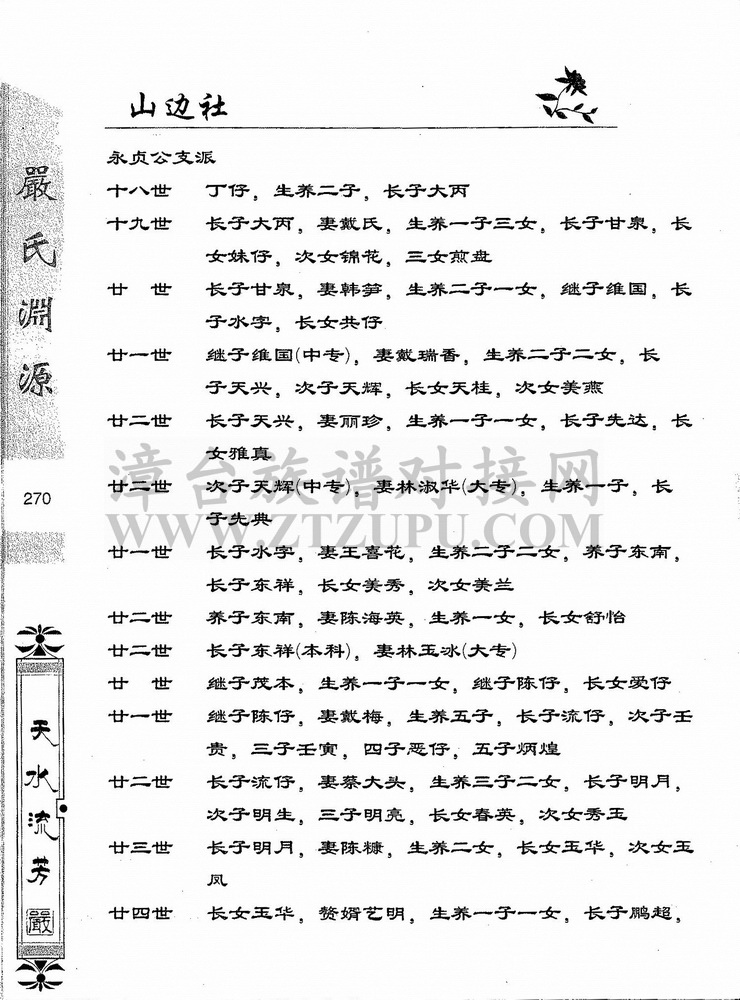 山边社
永贞公支派
十八世 丁仔，生养二子，长子大丙
十九世 长子大丙，妻戴氏，生养一子三女，长子甘泉，长
女妹仔，次女锦花，三女煎盘
廿 世 长子甘泉，妻韩笋，生养二子一女，继子维国，长
子水字，长女共仔
廿一世 继子维国(中专)，妻戴瑞香，生养二子二女，长
子天兴，次子天辉，长女天桂，次女美燕
廿二世 长子天兴，妻丽珍，生养一子一女，长子先达，长
女雅真
廿二世 次子天辉(中专)，妻林淑华(大专)，生养一子，长
子先典
廿一世 长子水字，妻王喜花，生养二子二女，养子东南，
长子东祥，长女美秀，次女美兰
廿二世 养子东南，妻陈海英，生养一女，长女舒怡
廿二世 长子东祥(本科)，妻林玉冰(大专)
廿 世 继子茂本，生养一子一女，继子陈仔，长女爱仔
廿一世 继子陈仔，妻戴梅，生养五子，长子流仔，次子壬
贵，三子壬寅，四子恶仔，五子炳煌
廿二世 长子流仔，妻蔡大头，生养三子二女，长子明月，
次子明生，三子明亮，长女春英，次女秀玉
廿三世 长子明月，妻陈糠，生养二女，长女玉华，次女玉
凤
廿四世 长女玉华，赘婿艺明，生养一子一女，长子鹏超，
嚴氏淵源
270
天水流芳
嚴
漳台族谱对接网
WWW.ZTZUPU.COM